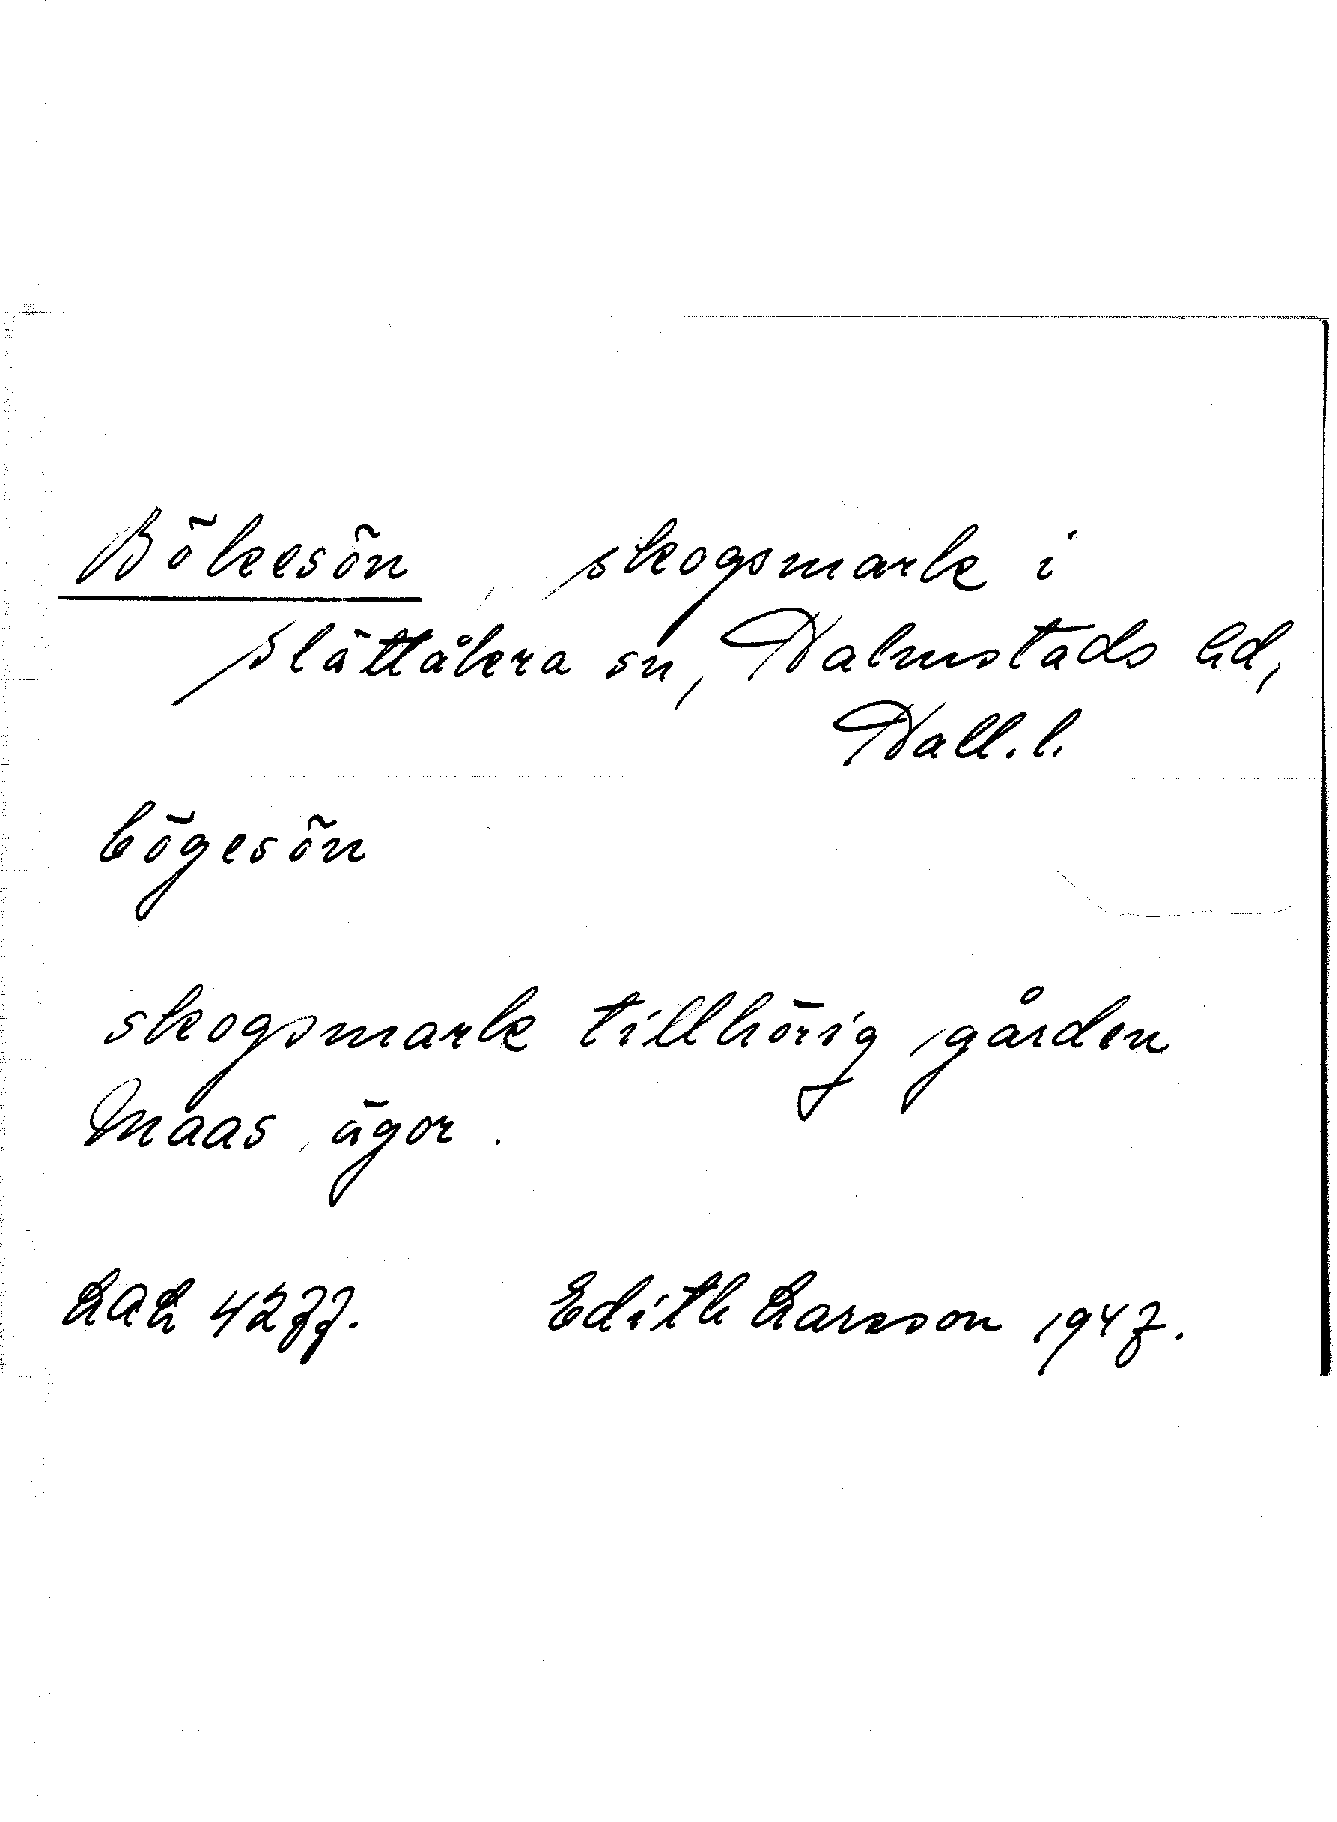 Bökesön, skogsmark i
Slättåkra sn, Halmstads hd,
Hall. l.
bögesön
skogsmark tillhörig gården
Maas ägor.
LAL 4277. Edith Larsson 1947.